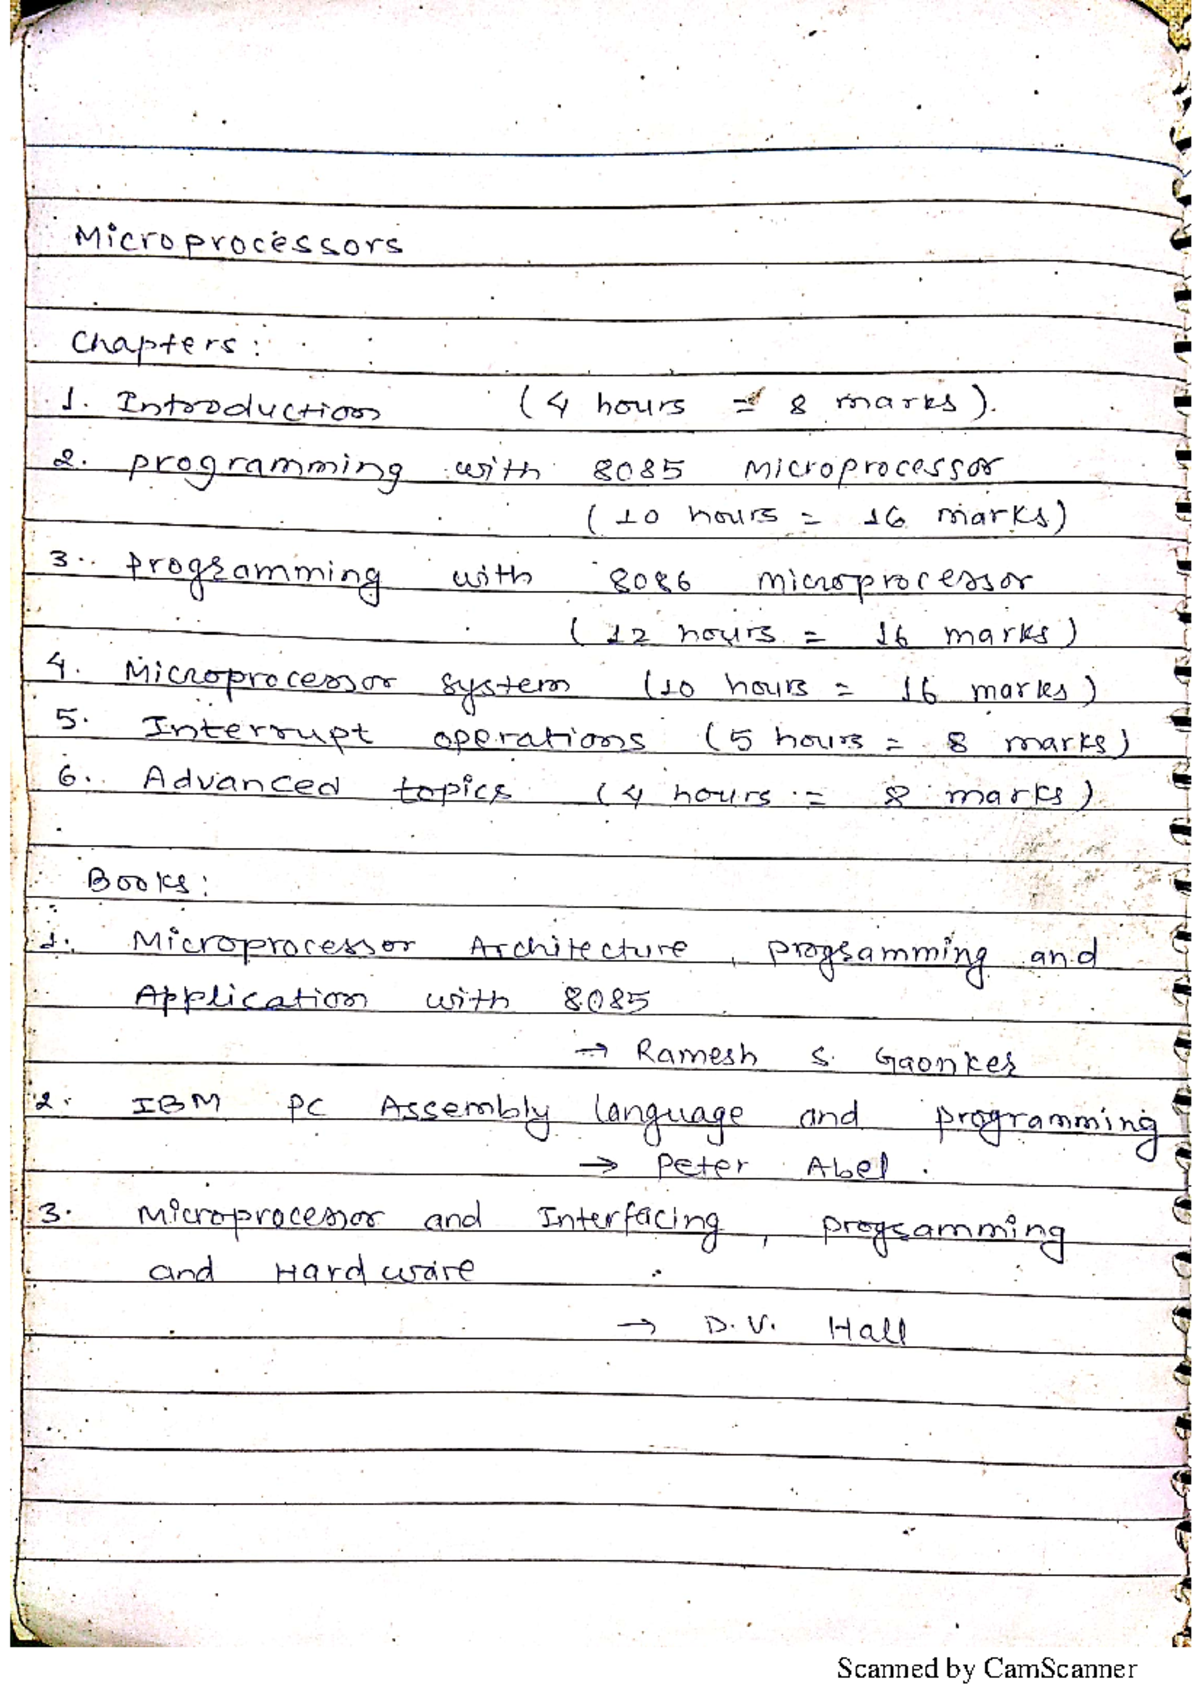 Microprocessors
Chapters:
1. Introduction (4 hours = 8 marks).
2. programming with 8085 Microprocessor
(10 hours = 16 marks)
3. programming with 8086 microprocessor
(12 hours = 16 marks)
4. Microprocessor system (10 hours = 16 marks)
5. Interrupt operations (5 hours = 8 marks)
6. Advanced topics (4 hours = 8 marks)
Books:
1. Microprocessor Architecture, programming and
Application with 8085
→ Ramesh S. Gaonker
2. IBM PC Assembly language and programming
→ Peter Abel.
3. Microprocessor and Interfacing, programming
and Hardware
→ D.V. Hall
Scanned by CamScanner